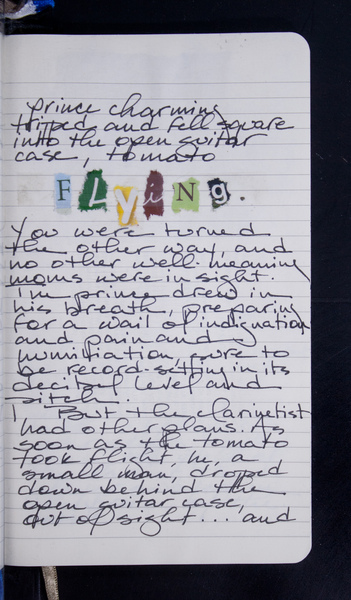 prince charming
tripped and fell square
into the open guitar
case, tomato
FLyiNg.
You were turned
the other way, and
no other well-meaning
moms were in sight.
Tm prince drew in
his breath, preparing
for a wail of indignation
and pain and
humiliation, sure to
be record-setting in its
decibel level and
pitch.
But the clarinetist
had other plans. As
soon as the tomato
took flight, he, a
small man, dropped
down behind the
open guitar case,
out of sight... and